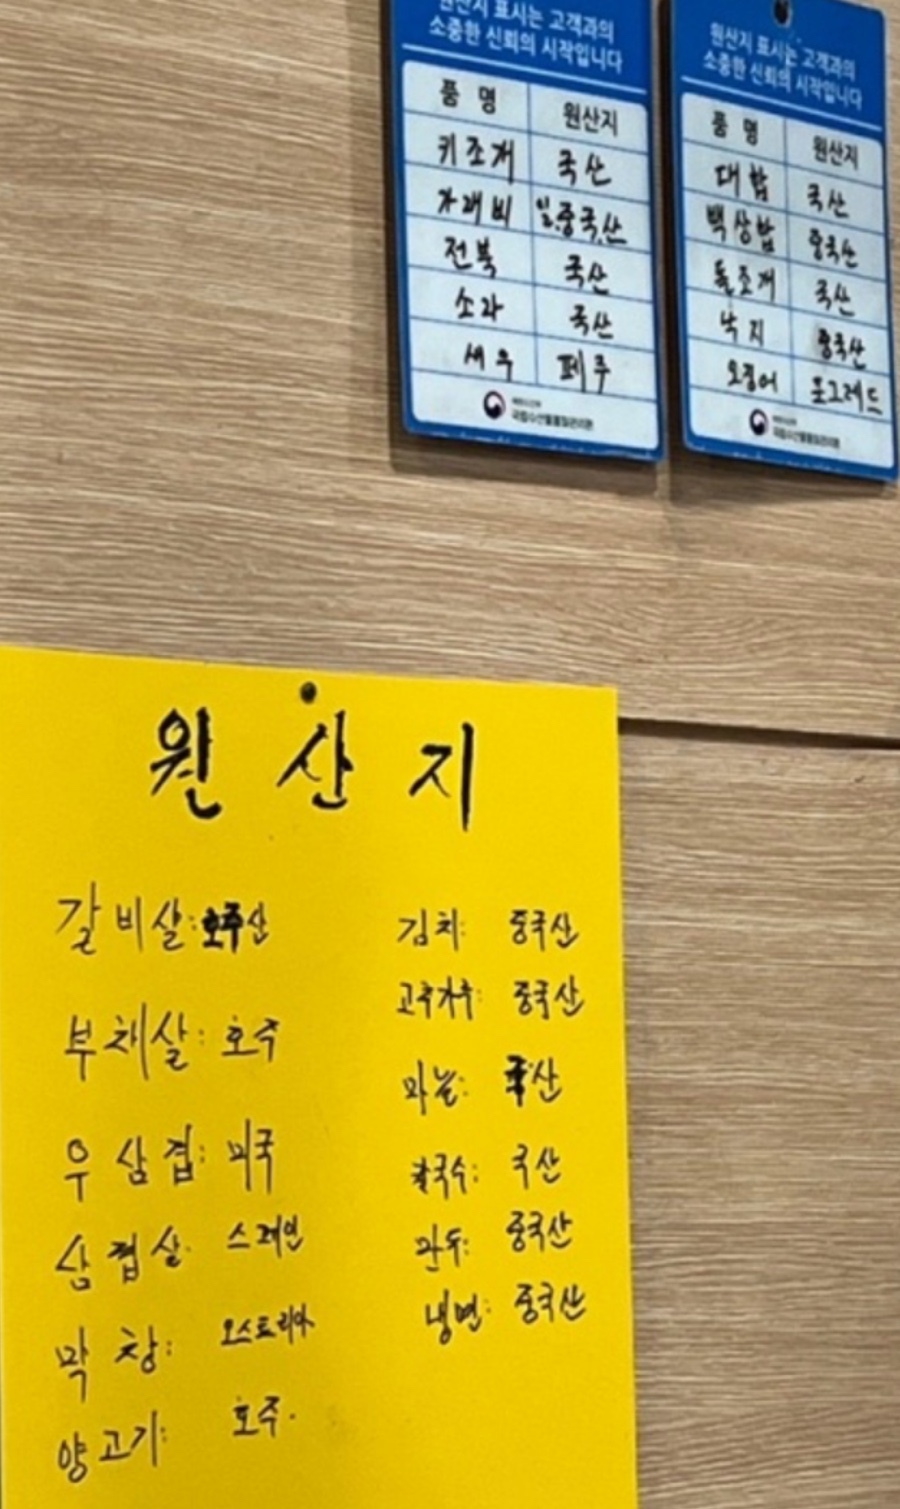 원산지 표시는 고객과의
소중한 신뢰의 시작입니다
품 명 원산지
키조개 국산
가래비 일.중국산
전복 국산
소라 국산
새우 페루
국립수산물품질관리원
원산지 표시는 고객과의
소중한 신뢰의 시작입니다
품 명 원산지
대합 국산
백상합 중국산
돌조개 국산
낙지 중국산
오징어 포크레드
국립수산물품질관리원
원산지
갈비살: 호주산
부채살: 호주
우삼겹: 미국
삼겹살: 스페인
막창: 오스트리아
양고기: 호주.
김치: 중국산
고추가루: 중국산
마늘: 국산
칼국수: 국산
만두: 중국산
냉면: 중국산